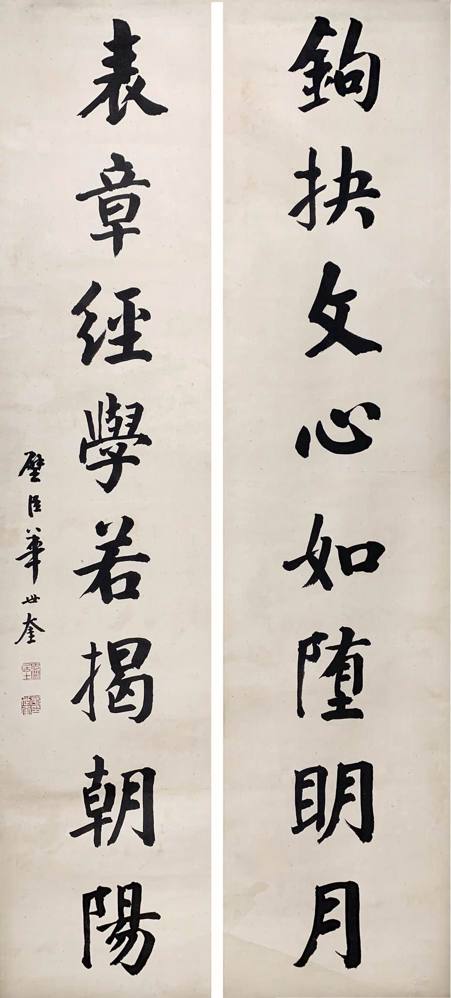 鉤抉文心如堕明月
表章經學若揭朝陽
璧臣華世奎